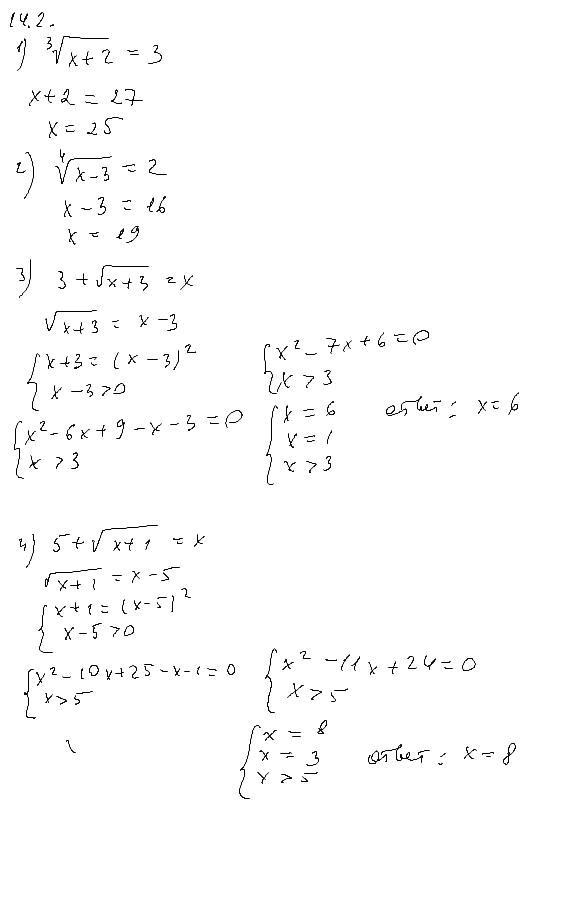 14.2.
1) ∛(x+2) = 3
x+2 = 27
x = 25
2) ∜(x-3) = 2
x - 3 = 16
x = 19
3) 3 + √(x+3) = x
√(x+3) = x - 3
{ x+3 = (x-3)²
x - 3 > 0
{ x² - 6x + 9 - x - 3 = 0
x > 3
{ x² - 7x + 6 = 0
x > 3
{ x = 6
x = 1
x > 3
ответ: x = 6
4) 5 + √(x+1) = x
√(x+1) = x - 5
{ x+1 = (x-5)²
x - 5 > 0
{ x² - 10x + 25 - x - 1 = 0
x > 5
{ x² - 11x + 24 = 0
x > 5
{ x = 8
x = 3
x > 5
ответ: x = 8